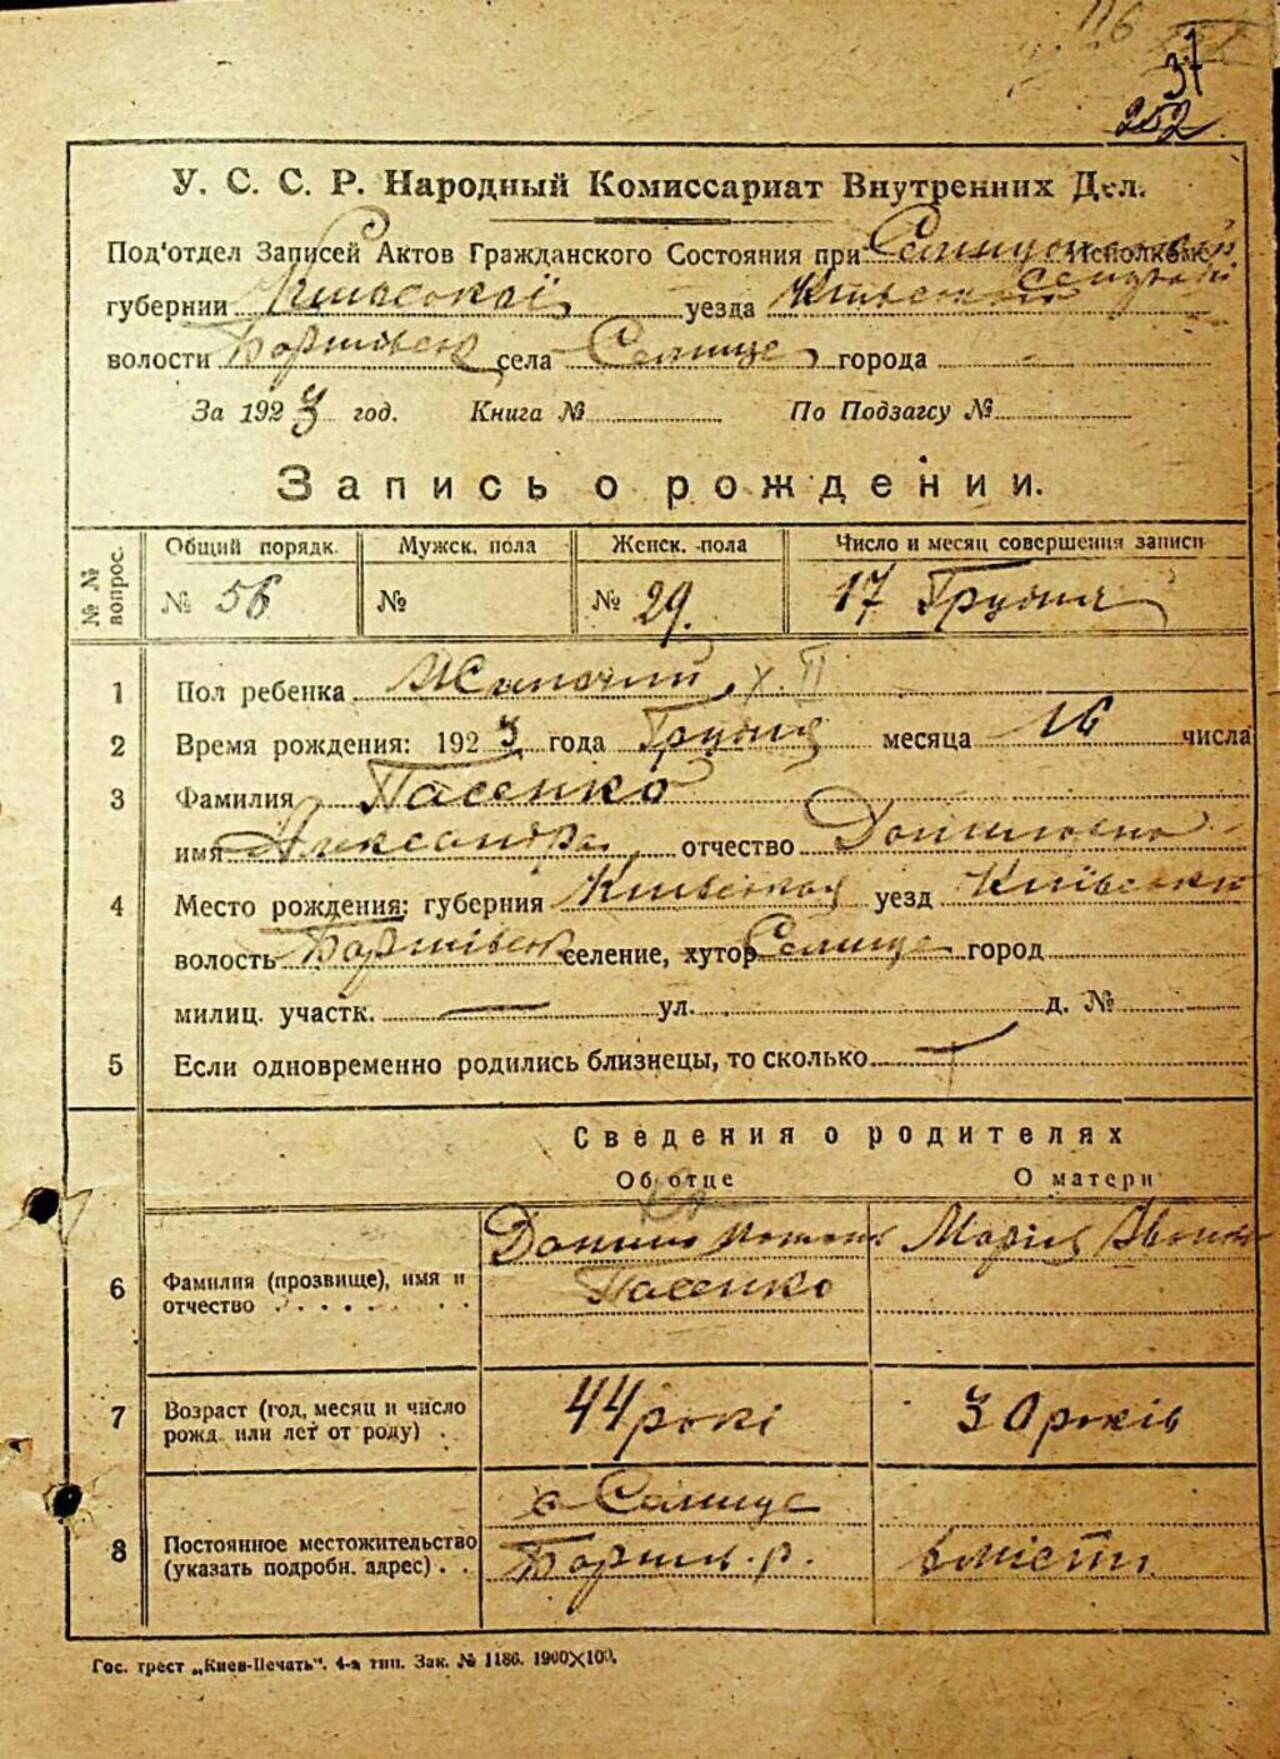 116
37
252
У. С. С. Р. Народный Комиссариат Внутренних Дел.
Под'отдел Записей Актов Гражданского Состояния при Исполкоме
губернии Київської уезда Київський
волости села Селище города -
За 1923 год. Книга № По Подзагсу №
Запись о рождении.
№ № вопрос. Общий порядк. Мужск. пола Женск. пола Число и месяц совершения записи
№ 56 № № 29. 17 Грудня
1 Пол ребенка Жиночий
2 Время рождения: 1923 года Грудня месяца 16 числа
3 Фамилия Пасенко
имя Александра отчество Даниловна
4 Место рождения: губерния Київська уезд Київськи
волость селение, хутор Селище город
милиц. участк. — ул. д. №
5 Если одновременно родились близнецы, то сколько —
Сведения о родителях
Об отце О матери
6 Фамилия (прозвище), имя и отчество Данило Пасенко Марія
7 Возраст (год, месяц и число рожд. или лет от роду) 44 рокі 30 років
8 Постоянное местожительство (указать подробн. адрес) с Селище вмісти
Гос. трест „Киев-Печать“. 4-я тип. Зак. № 1186. 1900×100.